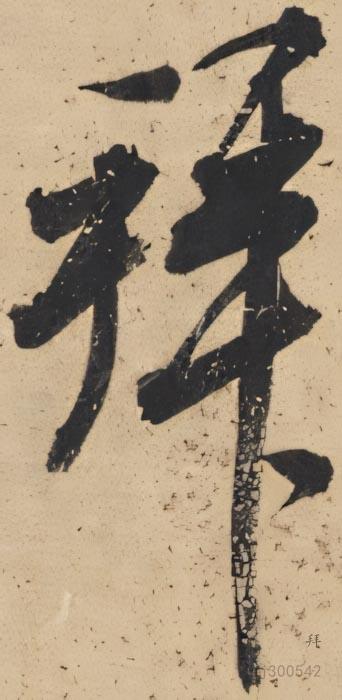 拜
拜
1300542